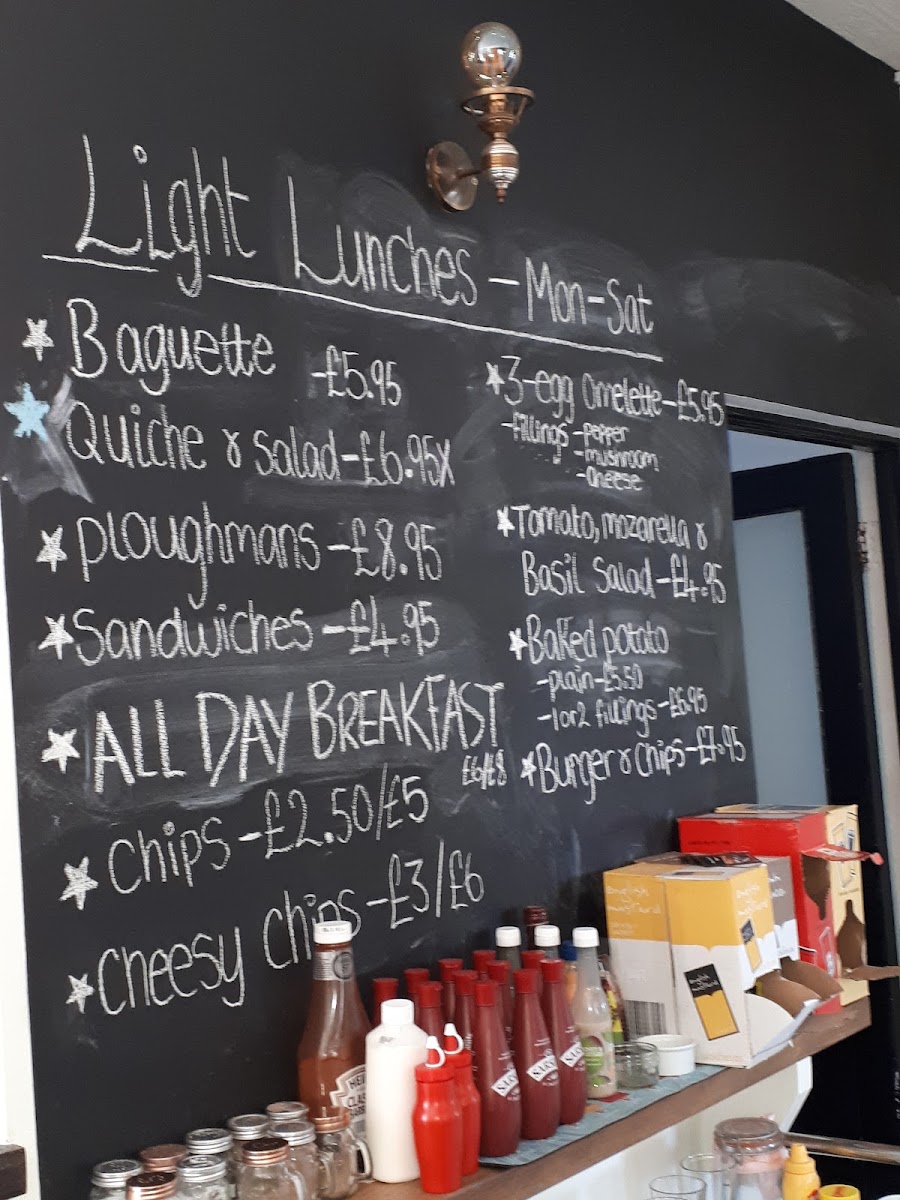 Light Lunches - Mon-Sat
Baguette -£5.95
Quiche & Salad -£6.95X
Ploughmans -£8.95
Sandwiches -£4.95
ALL DAY BREAKFAST £6/£8
Chips -£2.50/£5
Cheesy Chips -£3/£6
3-egg Omelette -£5.95
-fillings -pepper
-mushroom
-cheese
Tomato, mozarella &
Basil Salad -£4.95
Baked potato
-plain -£5.50
-1 or 2 fillings -£6.95
Burger & Chips -£7.95
english
mustard